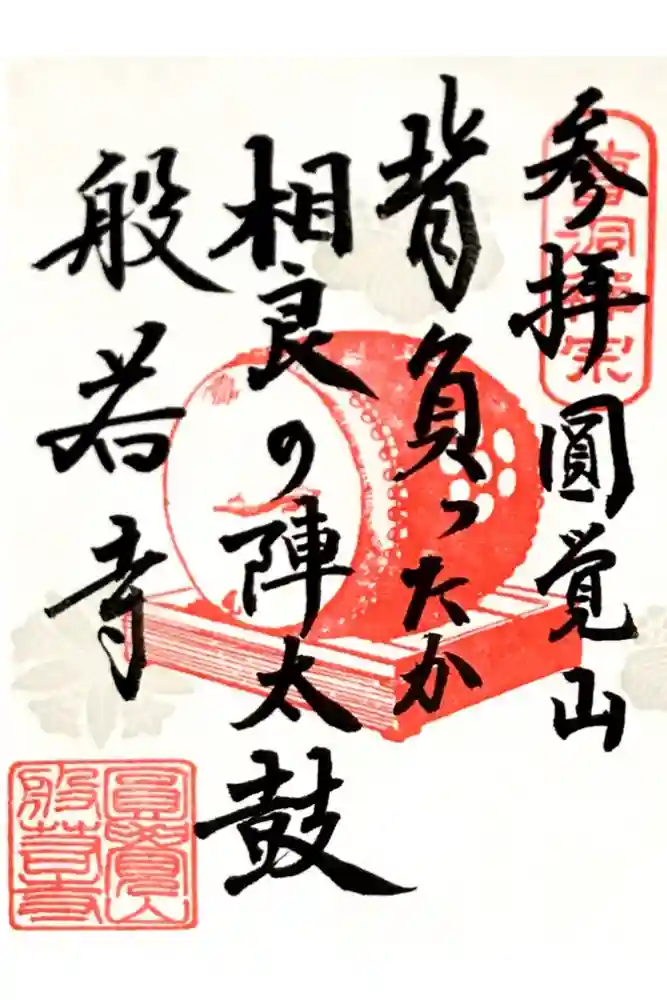 参拝 圓覚山
背負ったか
相良の陣太鼓
般若寺
曹洞禅宗
圓覺山
般若寺